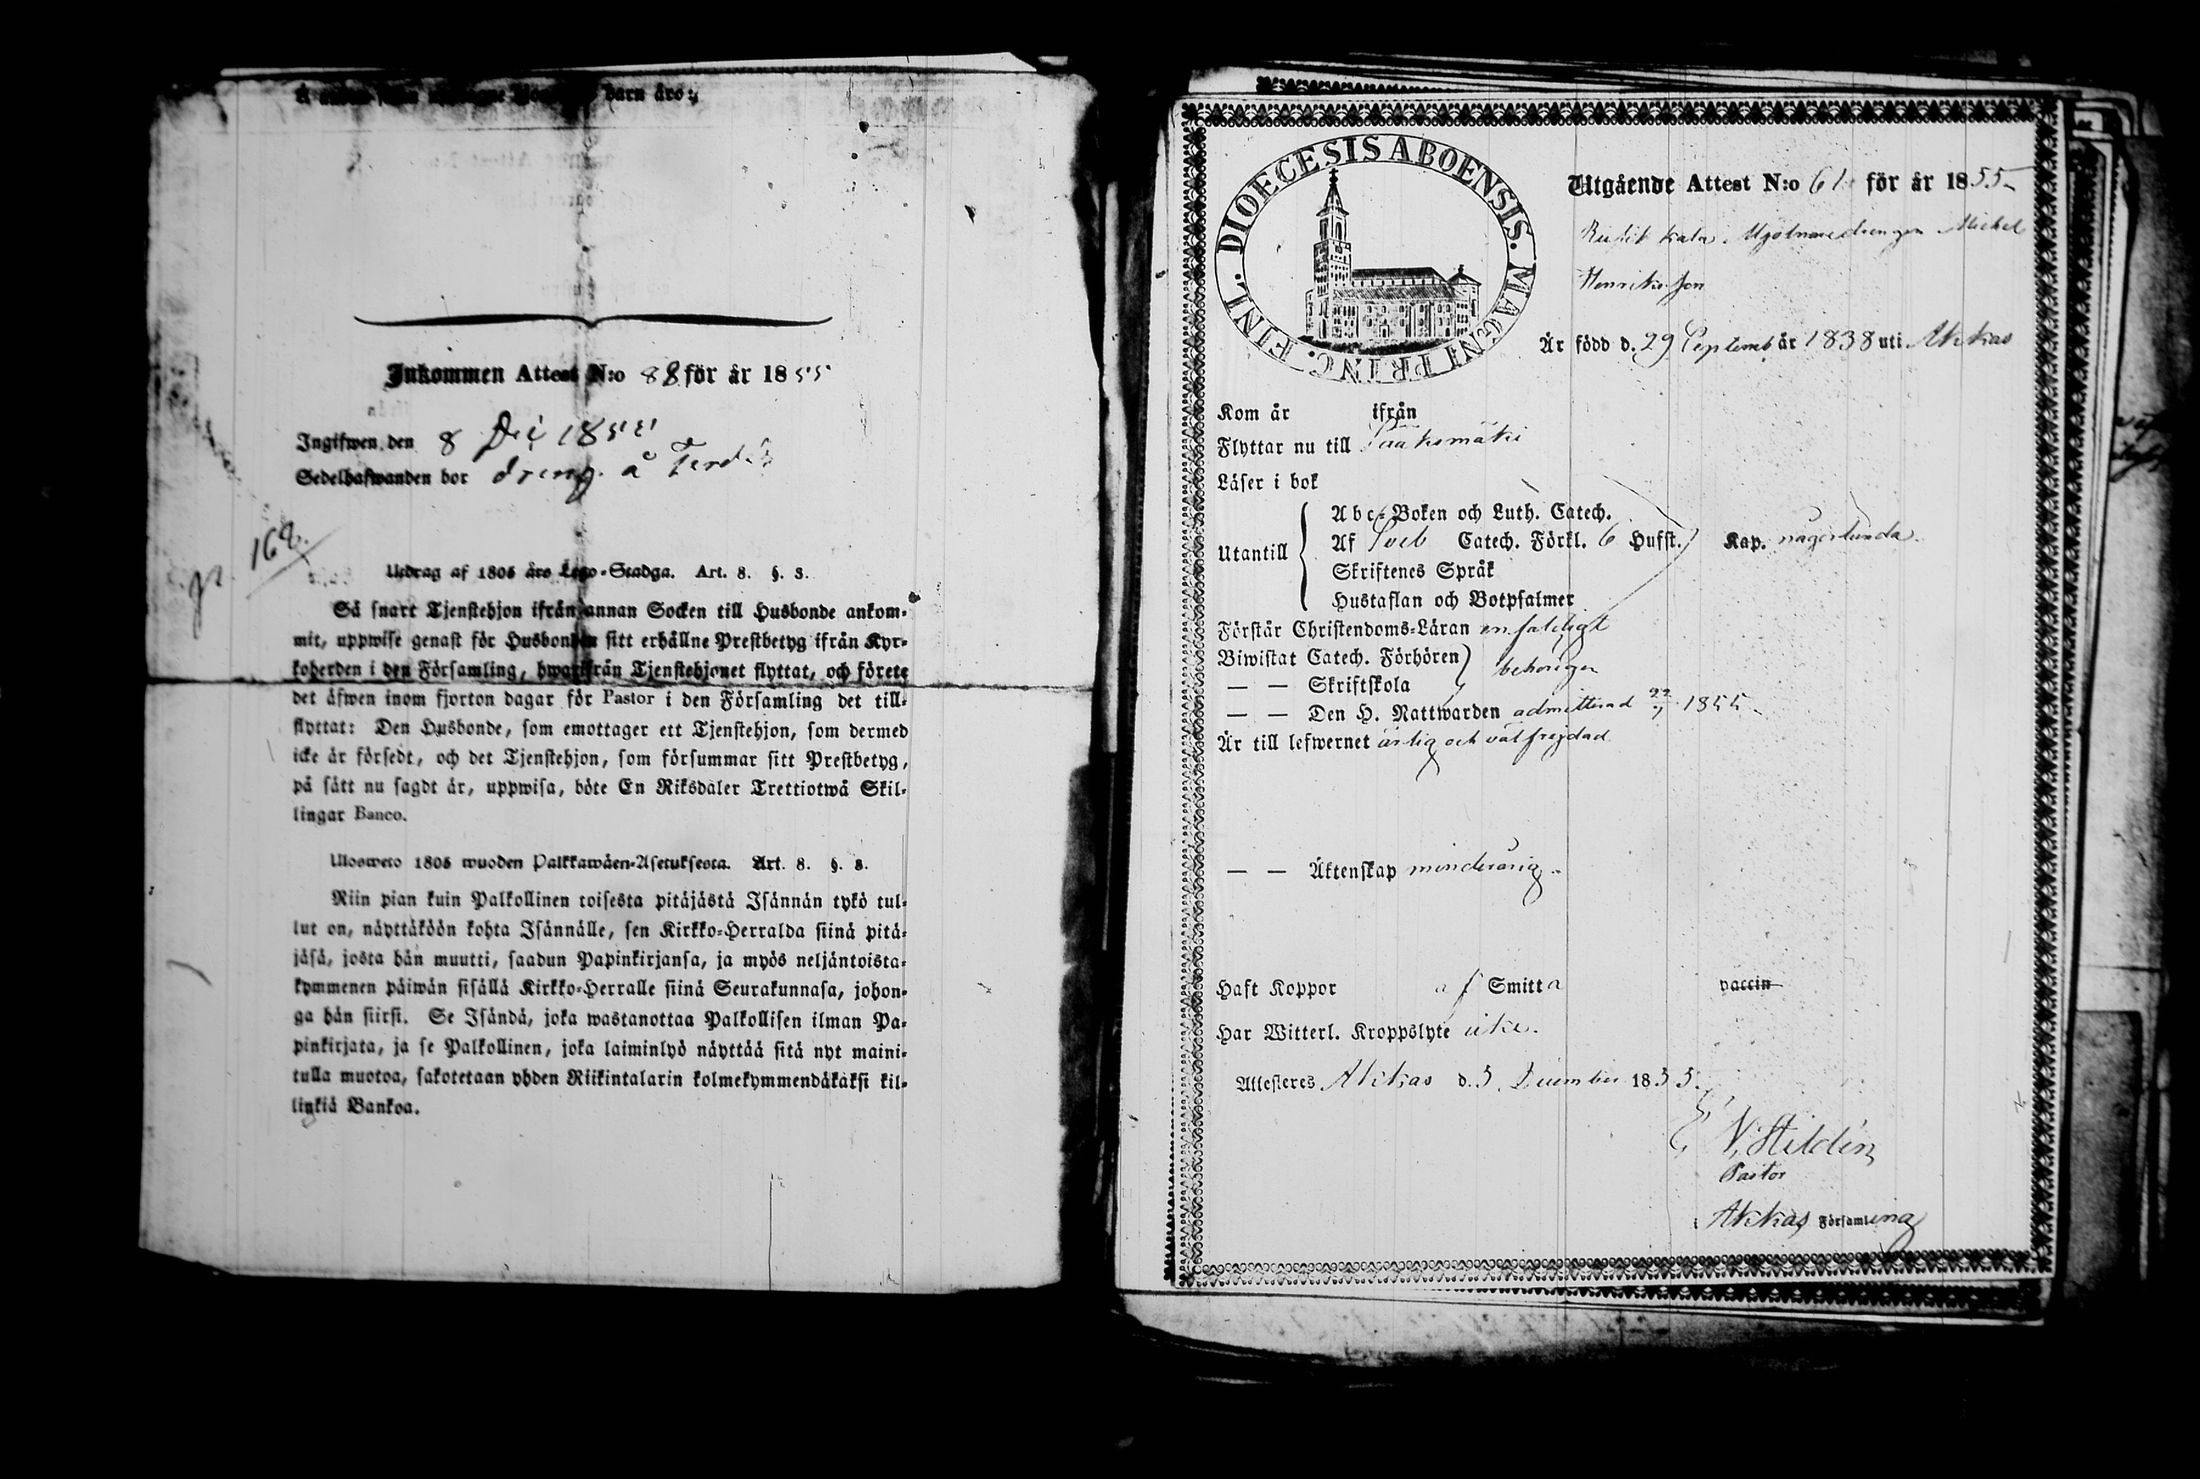 barn äro:
Inkommen Attest N:o 88 för år 1855
Ingifwen den 8 Dec 1855
Sedelhafwanden bor dreng å
168.
Utdrag af 1805 års Lego-Stadga. Art. 8. §. 3.
Så snart Tjenstehjon ifrån annan Socken till Husbonde ankom-
mit, uppwise genast för Husbonden sitt erhållne Prestbetyg ifrån Kyr-
koherden i den Församling, hwarifrån Tjenstehjonet flyttat, och förete
det äfwen inom fjorton dagar för Pastor i den Församling det till-
flyttat: Den Husbonde, som emottager ett Tjenstehjon, som dermed
icke är försedt, och det Tjenstehjon, som försummar sitt Prestbetyg,
på sätt nu sagdt är, uppwisa, böte En Riksdaler Trettiotwå Skil-
lingar Banco.
Ulosweto 1805 wuoden Palkkawäen-Asetuksesta. Art. 8. §. 3.
Niin pian kuin Palkollinen toisesta pitäjästä Isännän tykö tul-
lut on, näyttäköön kohta Isännälle, sen Kirkko-Herralda siinä pitä-
jäsä, josta hän muutti, saadun Papinkirjansa, ja myös neljäntoista-
kymmenen päiwän sisällä Kirkko-Herralle siinä Seurakunnasa, johon-
ga hän siirsi. Se Isändä, joka wastanottaa Palkollisen ilman Pa-
pinkirjata, ja se Palkollinen, joka laiminlyö näyttää sitä nyt maini-
tulla muotoa, sakotetaan yhden Riikintalarin kolmekymmendäkaksi kil-
linkiä Bankoa.
DIOECESIS ABOENSIS. MAGNI PRINC. FINL.
Utgående Attest N:o 61 för år 1855
Mjölnaredrengen Michel
Henriksson
Är född d. 29 September år 1838 uti Akkas
Kom år ifrån
Flyttar nu till Sääksmäki
Läser i bok
Utantill
Abc-Boken och Luth. Catech.
Af Sveb Catech. Förkl. 6 Hufst. Kap. någorlunda
Skriftenes Språk
Hustaflan och Botpsalmer
Förstår Christendoms-Läran enfaldigt
Biwistat Catech. Förhören
— — Skriftskola behörigen
— — Den H. Nattwarden admitterad 22/7 1855
Är till lefwernet ärlig och välfrejdad
— — Äktenskap minderårig
Haft Koppor af Smitta vaccin
Har Witterl. Kroppslyte icke.
Attesteres Akkas d. 5 December 1855.
E. N. Hildén
Pastor
i Akkas Församling